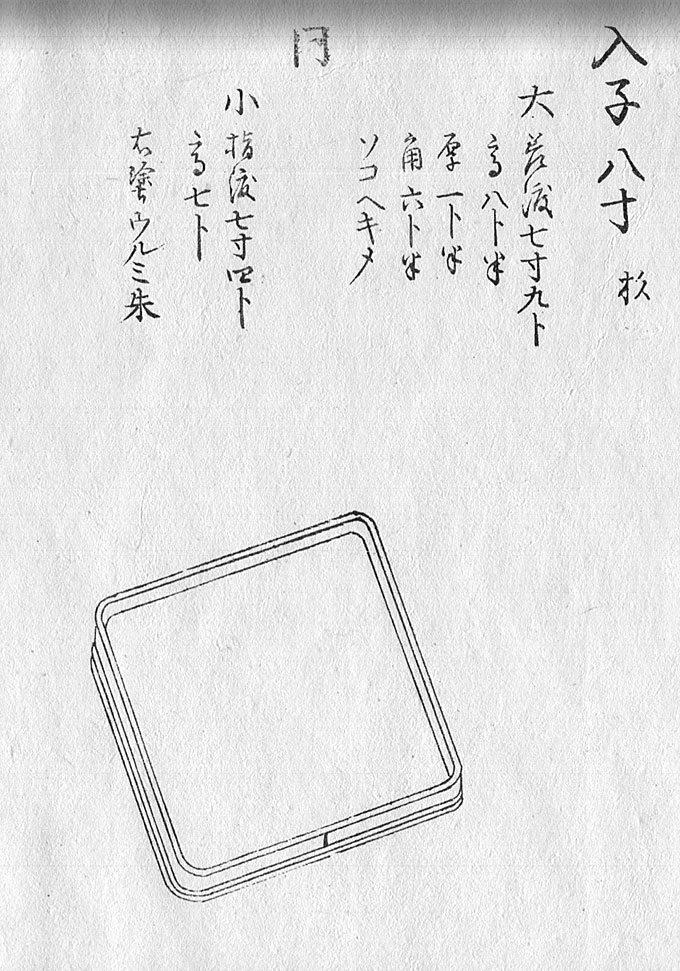 入子八寸 杉
大 差渡七寸九卜
高八卜半
厚一卜半
角六卜半
ソコヘキメ
小 指渡七寸四卜
高七卜
右塗ウルミ朱